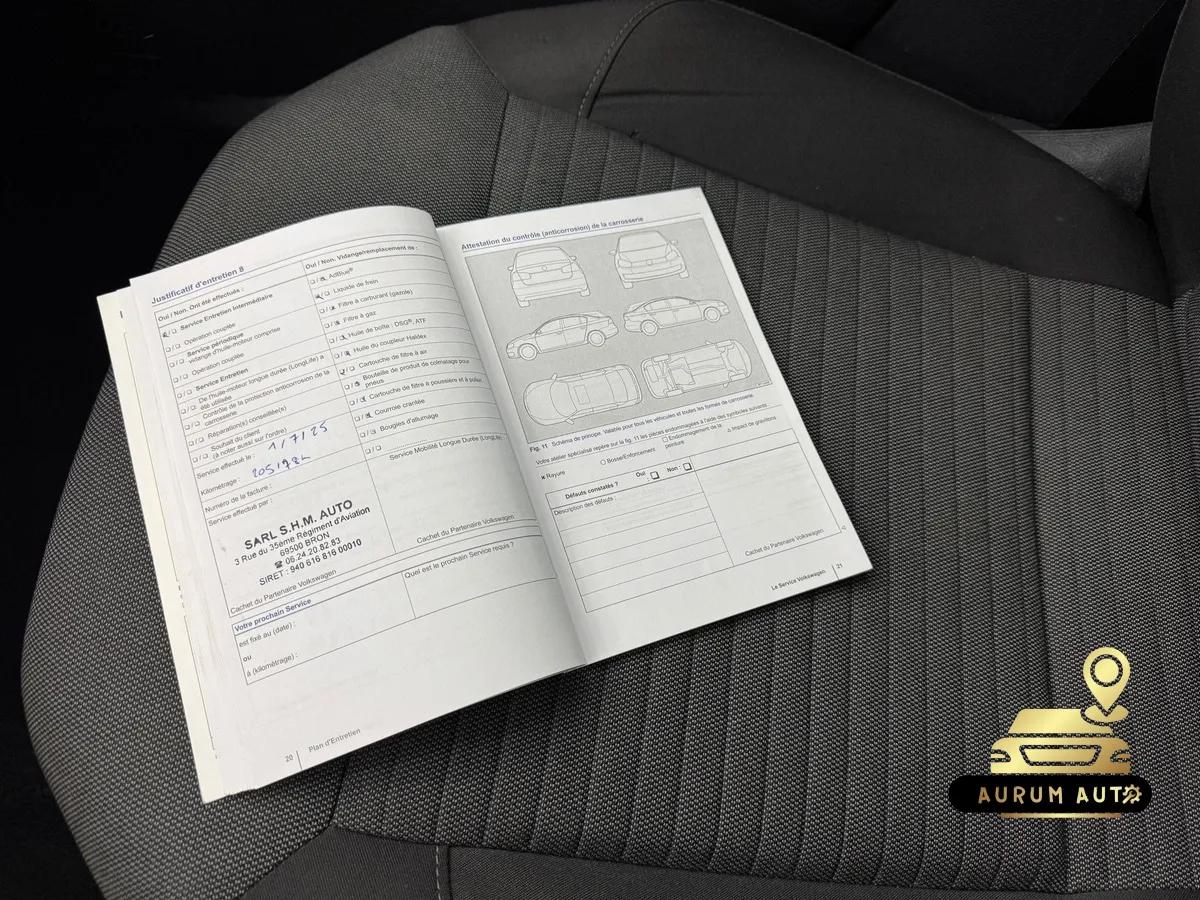 Justificatif d'entretien 8
Oui / Non. Ont été effectués :
Service Entretien Intermédiaire
Opération couplée
Service périodique
vidange d'huile-moteur comprise
Opération couplée
Service Entretien
De l'huile-moteur longue durée (LongLife) a
été utilisée
Contrôle de la protection anticorrosion de la
carrosserie
Réparation(s) conseillée(s)
Souhait du client
(à noter aussi sur l'ordre)
Service effectué le : 1/7/25
Kilométrage :
Numéro de la facture :
Service effectué par :
SARL S.H.M. AUTO
3 Rue du 35eme Régiment d'Aviation
69500 BRON
☎ 06.24.20.82.83
SIRET : 940 616 816 00010
Cachet du Partenaire Volkswagen
Oui / Non. Vidange/remplacement de :
AdBlue®
Liquide de frein
Filtre à carburant (gazole)
Filtre à gaz
Huile de boîte : DSG®, ATF
Huile du coupleur Haldex
Cartouche de filtre à air
Bouteille de produit de colmatage pour
pneus
Cartouche de filtre à poussière et à pollen
Courroie crantée
Bougies d'allumage
Service Mobilité Longue Durée (LongLife)
Cachet du Partenaire Volkswagen
Votre prochain Service
est fixé au (date) :
ou
à (kilométrage) :
Quel est le prochain Service requis ?
20 Plan d'Entretien
Attestation du contrôle (anticorrosion) de la carrosserie
Fig. 11 Schéma de principe. Valable pour tous les véhicules et toutes les formes de carrosserie.
Votre atelier spécialisé repère sur la fig. 11 les pièces endommagées à l'aide des symboles suivants
× Rayure
○ Bosse/Enfoncement
□ Endommagement de la
peinture
△ Impact de gravillons
Défauts constatés ? Oui : □ Non : □
Description des défauts :
Cachet du Partenaire Volkswagen
Le Service Volkswagen 21
AURUM AUTO